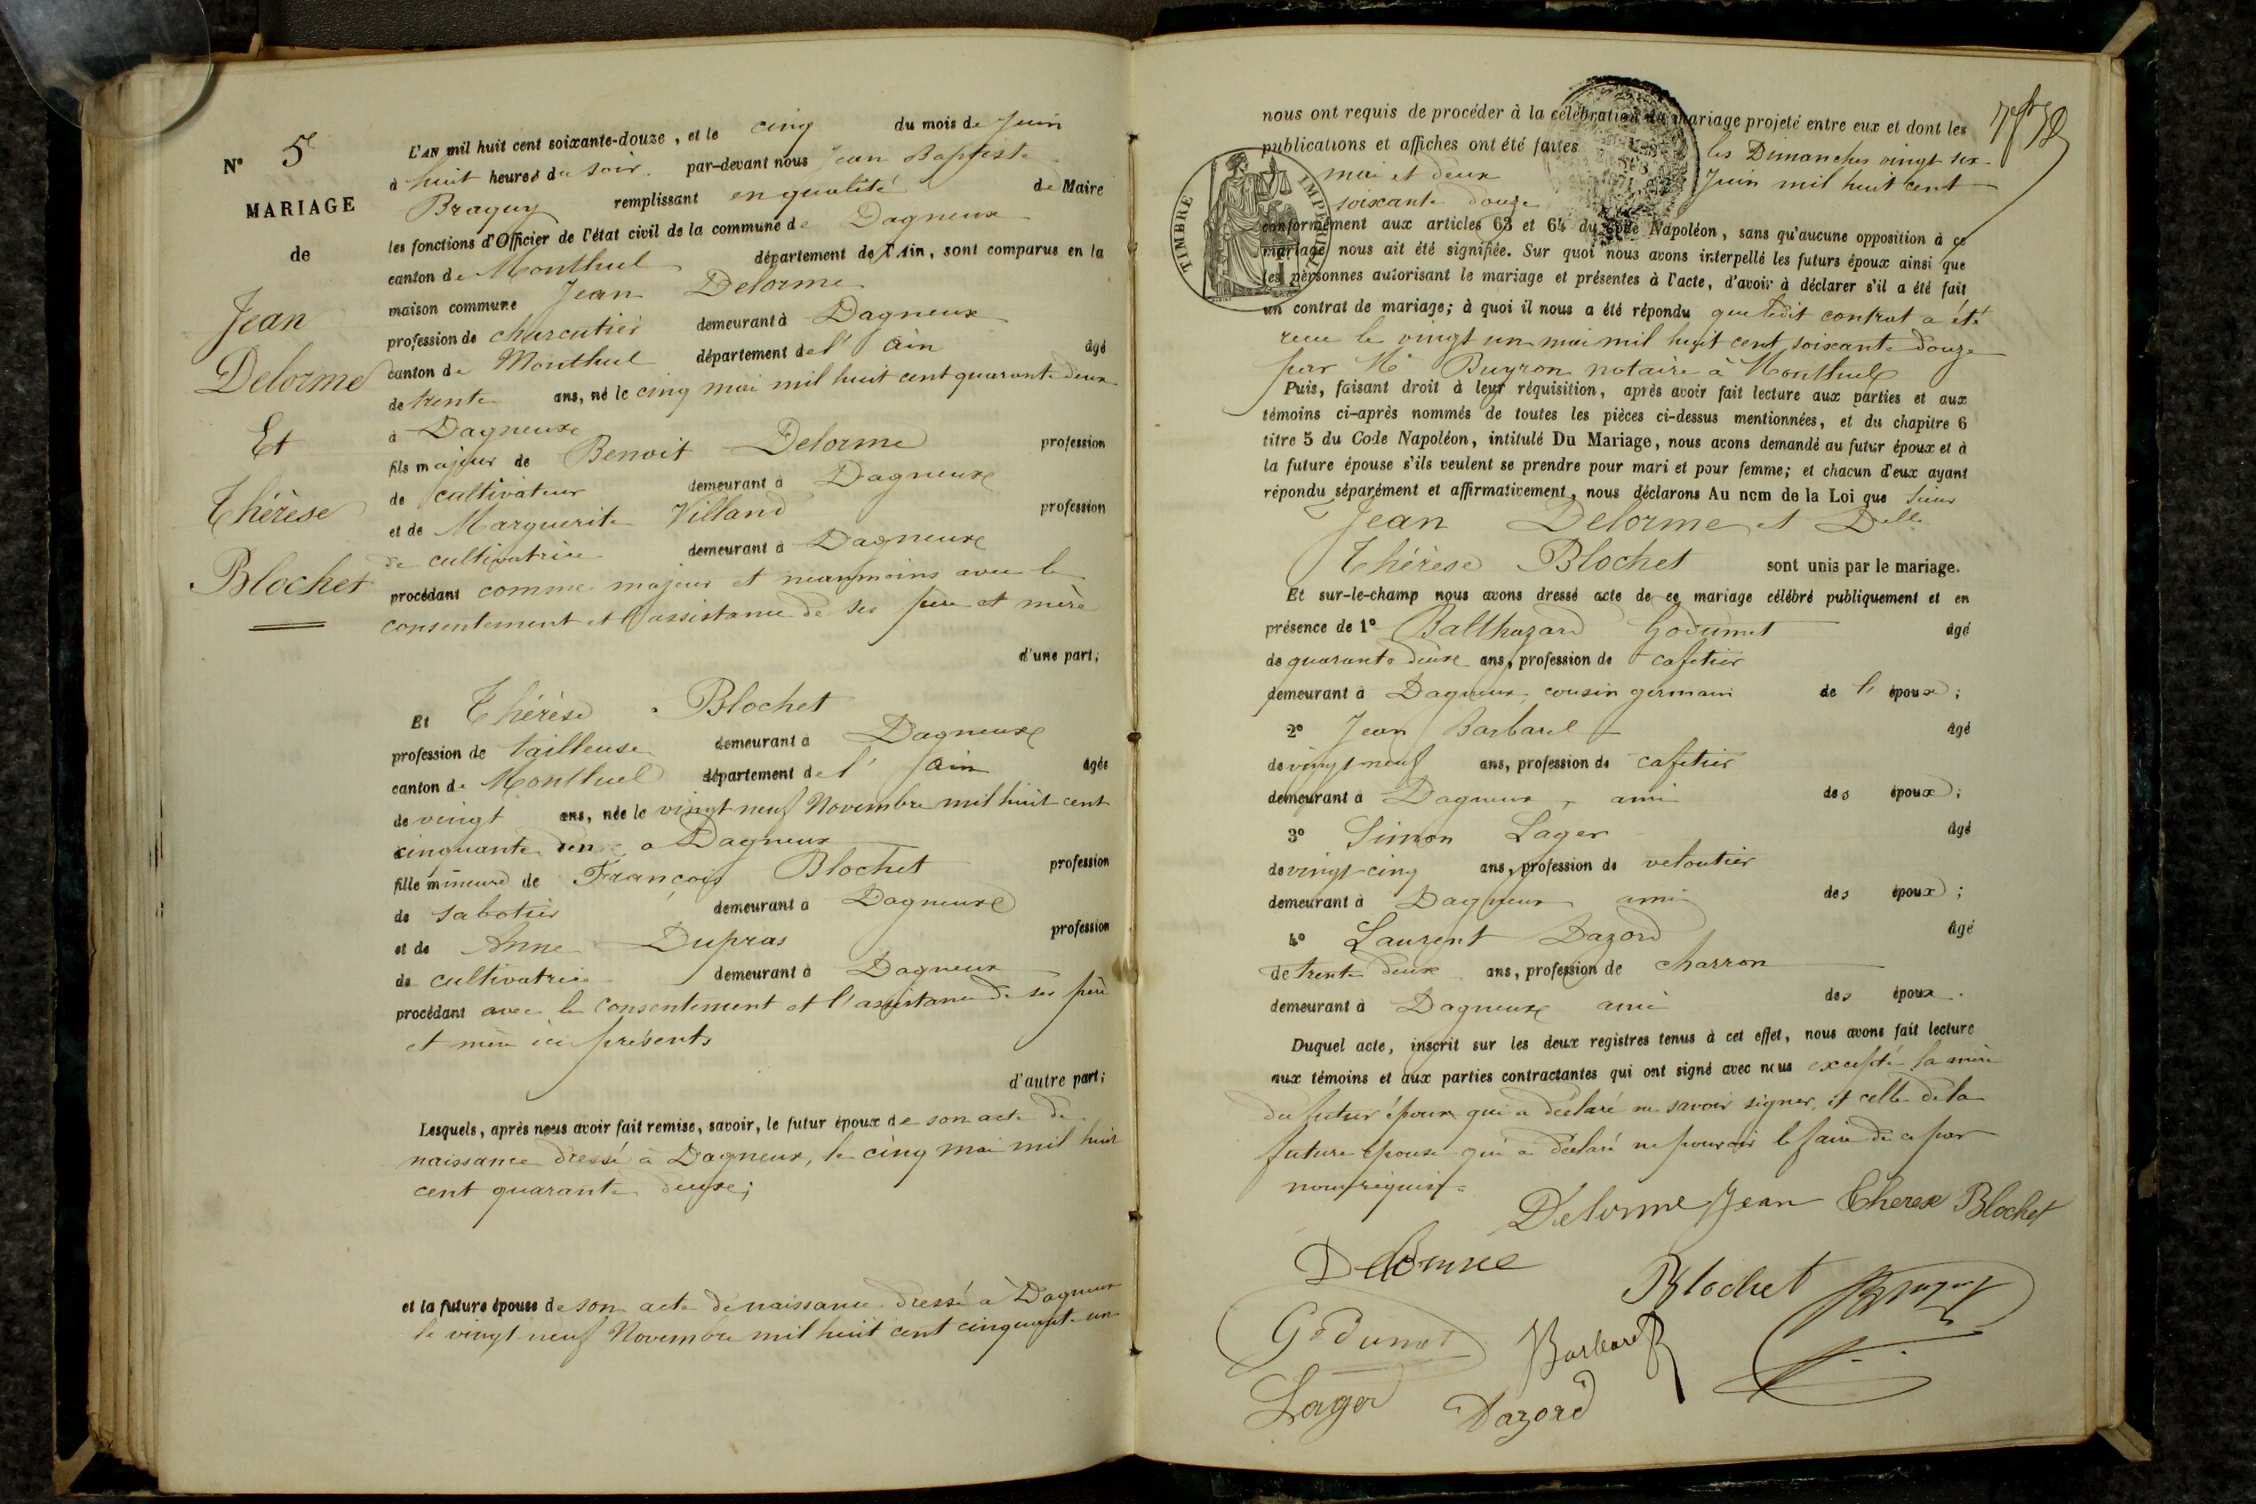 N° 5
MARIAGE
de
Jean
Delorme
Et
Thérèse
Blochet
L'AN mil huit cent soixante-douze, et le cinq du mois de Juin
à huit heures du soir par-devant nous Jean Baptiste
Braguy remplissant en qualité de Maire
les fonctions d'Officier de l'état civil de la commune de Dagneux
canton de Montluel département de l'Ain, sont comparus en la
maison commune Jean Delorme
profession de charcutier demeurant à Dagneux
canton de Montluel département de l' Ain âgé
de trente ans, né le cinq mai mil huit cent quarante deux
à Dagneux
fils majeur de Benoit Delorme profession
de cultivateur demeurant à Dagneux
et de Marguerite Villand profession
de cultivatrice demeurant à Dagneux
procédant comme majeur et neanmoins avec le
consentement et l'assistance de ses père et mère
d'une part;
Et Thérèse Blochet
profession de tailleuse demeurant à Dagneux
canton de Montluel département de l' Ain âgée
de vingt ans, née le vingt neuf Novembre mil huit cent
cinquante à Dagneux
fille mineure de François Blochet profession
de sabotier demeurant à Dagneux
et de Anne Dupras profession
de cultivatrice demeurant à Dagneux
procédant avec le consentement et l'assistance de ses père
et mère ici présents
d'autre part;
Lesquels, après nous avoir fait remise, savoir, le futur époux de son acte de
naissance dressé à Dagneux, le cinq mai mil huit
cent quarante deux;
et la future épouse de son acte de naissance dressé à Dagneux
le vingt neuf Novembre mil huit cent cinquante un
nous ont requis de procéder à la célébration du mariage projeté entre eux et dont les
publications et affiches ont été faites les Dimanches vingt six
mai et deux Juin mil huit cent
soixante douze
TIMBRE IMPERIAL
conformément aux articles 63 et 64 du Code Napoléon, sans qu'aucune opposition à ce
mariage nous ait été signifiée. Sur quoi nous avons interpellé les futurs époux ainsi que
les personnes autorisant le mariage et présentes à l'acte, d'avoir à déclarer s'il a été fait
un contrat de mariage; à quoi il nous a été répondu que ledit contrat a été
recu le vingt un mai mil huit cent soixante douze
par Me Buyron notaire à Montluel
Puis, faisant droit à leur réquisition, après avoir fait lecture aux parties et aux
témoins ci-après nommés de toutes les pièces ci-dessus mentionnées, et du chapitre 6
titre 5 du Code Napoléon, intitulé Du Mariage, nous avons demandé au futur époux et à
la future épouse s'ils veulent se prendre pour mari et pour femme; et chacun d'eux ayant
répondu séparément et affirmativement, nous déclarons Au nom de la Loi que Sieur
Jean Delorme et Delle
Thérèse Blochet sont unis par le mariage.
Et sur-le-champ nous avons dressé acte de ce mariage célébré publiquement et en
présence de 1° Balthazard Godumet âgé
de quarante deux ans, profession de cafetier
demeurant à Dagneux cousin germain de l' époux;
2° Jean Barbarel âgé
de vingt neuf ans, profession de cafetier
demeurant à Dagneux, ami des époux;
3° Simon Lager âgé
de vingt-cinq ans, profession de veloutier
demeurant à Dagneux ami des époux;
4° Laurent Dazord âgé
de trente deux ans, profession de charron
demeurant à Dagneux ami des époux.
Duquel acte, inscrit sur les deux registres tenus à cet effet, nous avons fait lecture
aux témoins et aux parties contractantes qui ont signé avec nous excepté la mère
du futur époux qui a déclaré ne savoir signer, et celle de la
future épouse qui a déclaré ne pouvoir le faire de ce par
nous requises
Delorme Jean Therese Blochet
Delorme Blochet
Godumet Barbarel
Lager Dazord